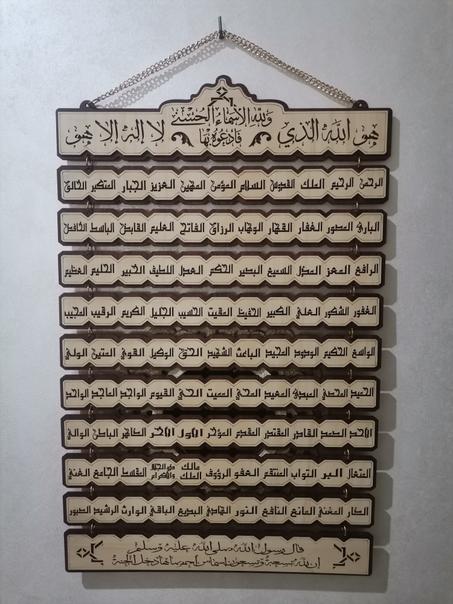 ولله الأسماء الحسنى
هو الله الذي فادعوه بها لا إله إلا هو
الرحمن الرحيم الملك القدوس السلام المؤمن المهيمن العزيز الجبار المتكبر الخالق
البارئ المصور الغفار القهار الوهاب الرزاق الفاتح العليم القابض الباسط الخافض
الرافع المعز المذل السميع البصير الحكم العدل اللطيف الخبير الحليم العظيم
الغفور الشكور العلي الكبير الحفيظ المقيت الحسيب الجليل الكريم الرقيب المجيب
الواسع الحكيم الودود المجيد الباعث الشهيد الحق الوكيل القوي المتين الولي
الحميد المحصي المبدئ المعيد المحي المميت الحي القيوم الواجد الماجد الواحد
الأحد الصمد القادر المقتدر المقدم المؤخر الأول الآخر الظاهر الباطن الوالي
المتعال البر التواب المنتقم العفو الرؤوف مالك الملك ذو الجلال والإكرام المقسط الجامع الغني
الضار المغني المانع النافع النور الهادي البديع الباقي الوارث الرشيد الصبور
قال رسول الله صلى الله عليه وسلم
إن لله تسعة وتسعون اسما من أحصاها دخل الجنة